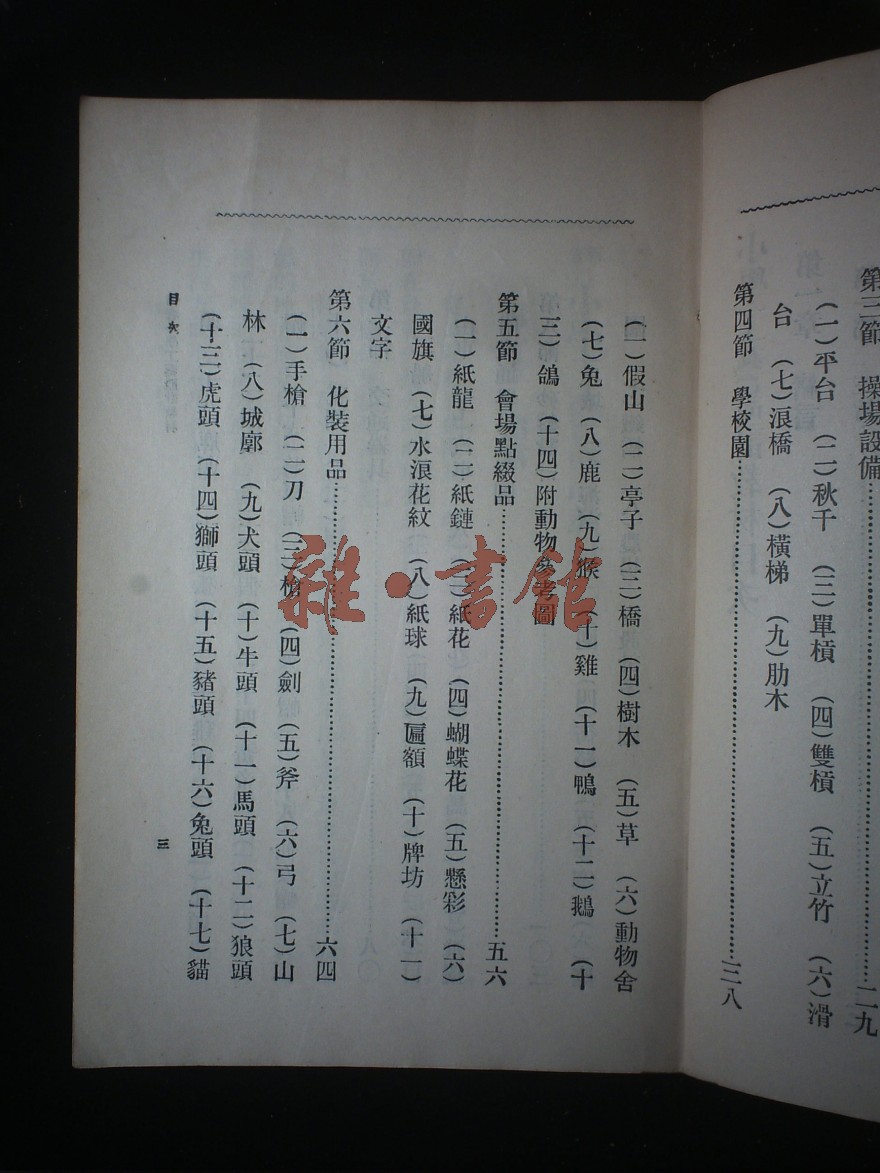 第三節　操場設備……二九
(一)平台　(二)秋千　(三)單槓　(四)雙槓　(五)立竹　(六)滑
台　(七)浪橋　(八)橫梯　(九)肋木
第四節　學校園……三八
(一)假山　(二)亭子　(三)橋　(四)樹木　(五)草　(六)動物舍
(七)兔　(八)鹿　(九)猴　(十)雞　(十一)鴨　(十二)鵝　(十
三)鴿　(十四)附動物參考圖
第五節　會場點綴品……五六
(一)紙龍　(二)紙鏈　(三)紙花　(四)蝴蝶花　(五)懸彩　(六)
國旗　(七)水浪花紋　(八)紙球　(九)匾額　(十)牌坊　(十一)
文字
第六節　化裝用品……六四
(一)手槍　(二)刀　(三)槍　(四)劍　(五)斧　(六)弓　(七)山
林　(八)城廓　(九)犬頭　(十)牛頭　(十一)馬頭　(十二)狼頭
(十三)虎頭　(十四)獅頭　(十五)豬頭　(十六)兔頭　(十七)貓
目次
三
雜·書館